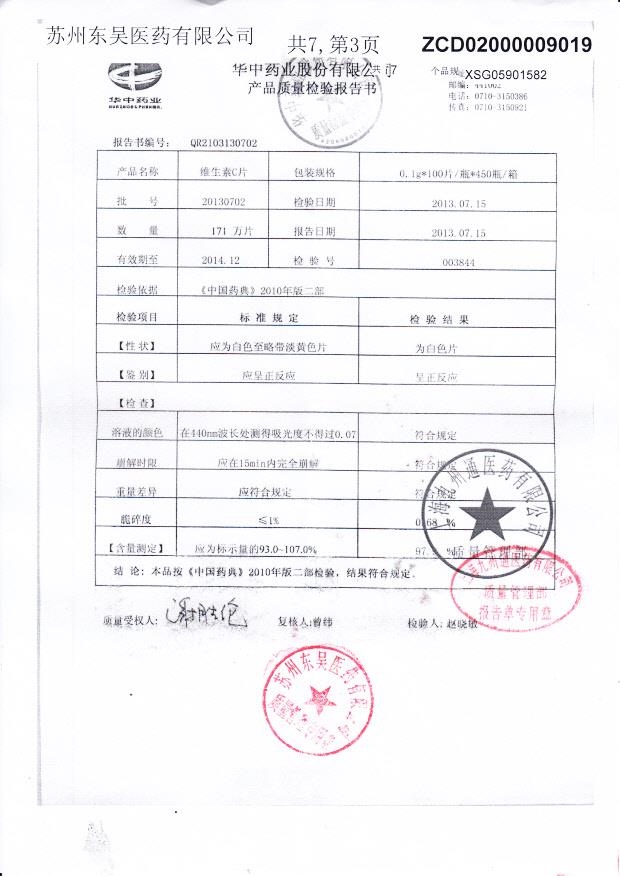 苏州东吴医药有限公司 共7,第3页 ZCD02000009019
华中药业股份有限公司
XSG05901582
产品质量检验报告书
华中药业
HUAZHONG PHARMA
电话: 0710-3150386
传真: 0710-3150921
报告书编号: QR2103130702
产品名称 维生素C片 包装规格 0.1g*100片/瓶*450瓶/箱
批 号 20130702 检验日期 2013.07.15
数 量 171 万片 报告日期 2013.07.15
有效期至 2014.12 检 验 号 003844
检验依据 《中国药典》2010年版二部
检验项目 标 准 规 定 检 验 结 果
【性 状】 应为白色至略带淡黄色片 为白色片
【鉴 别】 应呈正反应 呈正反应
【检 查】
溶液的颜色 在440nm波长处测得吸光度不得过0.07 符合规定
崩解时限 应在15min内完全崩解 符合规定
重量差异 应符合规定 符合规定
脆碎度 ≤1% %
【含量测定】 应为标示量的93.0~107.0% %
结 论: 本品按《中国药典》2010年版二部检验, 结果符合规定.
质量受权人: 复核人:曾纬 检验人: 赵晓敏
九州通医药有限公司
质量管理部
报告单专用章
苏州东吴医药有限公司